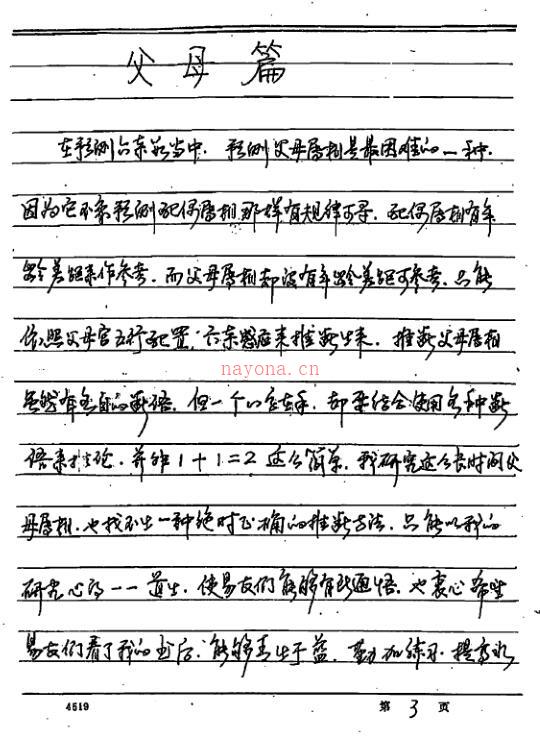 父母篇
在预测六亲当中、预测父母属相是最困难的一种.
因为它不象预测配偶属相那样有规律可寻、配偶属相有年
龄差距来作参考、而父母属相却没有年龄差距可参考、只能
依照父母宫五行配置、六亲感应来推断出来、推断父母属相
nayona.cn
虽然有各自的断语、但一个八字在手、却要结合使用各种断
语来推论、并非1+1=2这么简单、我研究这么长时间父
母属相、也找不出一种绝对正确的推断方法、只能以我的
研究心得一一道出、使易友们能够有所通悟、也衷心希望
易友们看了我的书后、能够青出于蓝、勤加练习、提高水
4519
第3页